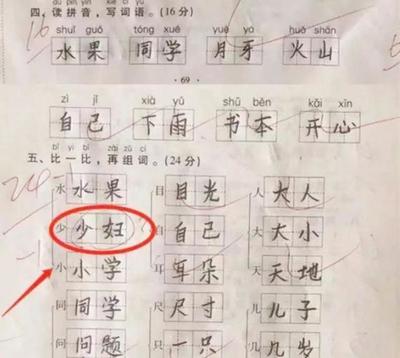 四、读拼音，写词语。(16分)
16
shuǐ guǒ tóng xué yuè yá huǒ shān
水果 同学 月牙 火山
69
zì jǐ xià yǔ shū běn kāi xīn
自己 下雨 书本 开心
bǐ yi bǐ zài zǔ cí
五、比一比，再组词。(24分)
水 水果 目 目光 人 大人
少 少妇 自 自己 大 大小
小 小学 耳 耳朵 天 天地
同 同学 尺 尺寸 儿 儿子
问 问题 只 一只 几 几岁